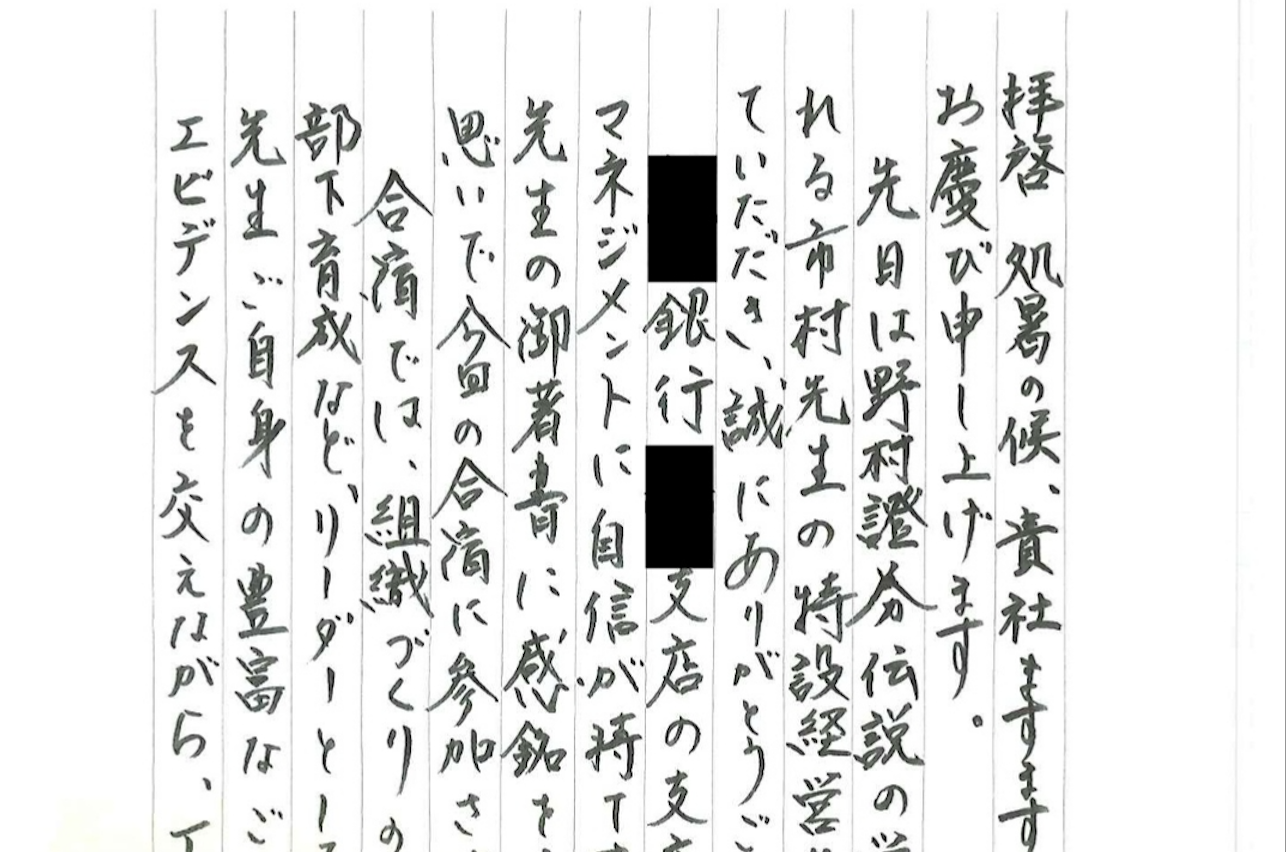 拝啓 処暑の候、貴社ますます
お慶び申し上げます。
先日は野村證券伝説の
れる市村先生の特設経営
ていただき、誠にありがとうご
銀行 支店の支
マネジメントに自信が持て
先生の御著書に感銘を
思いで今回の合宿に参加さ
合宿では、組織づくりの
部下育成など、リーダーとし
先生ご自身の豊富なご
エビデンスを交えながら、